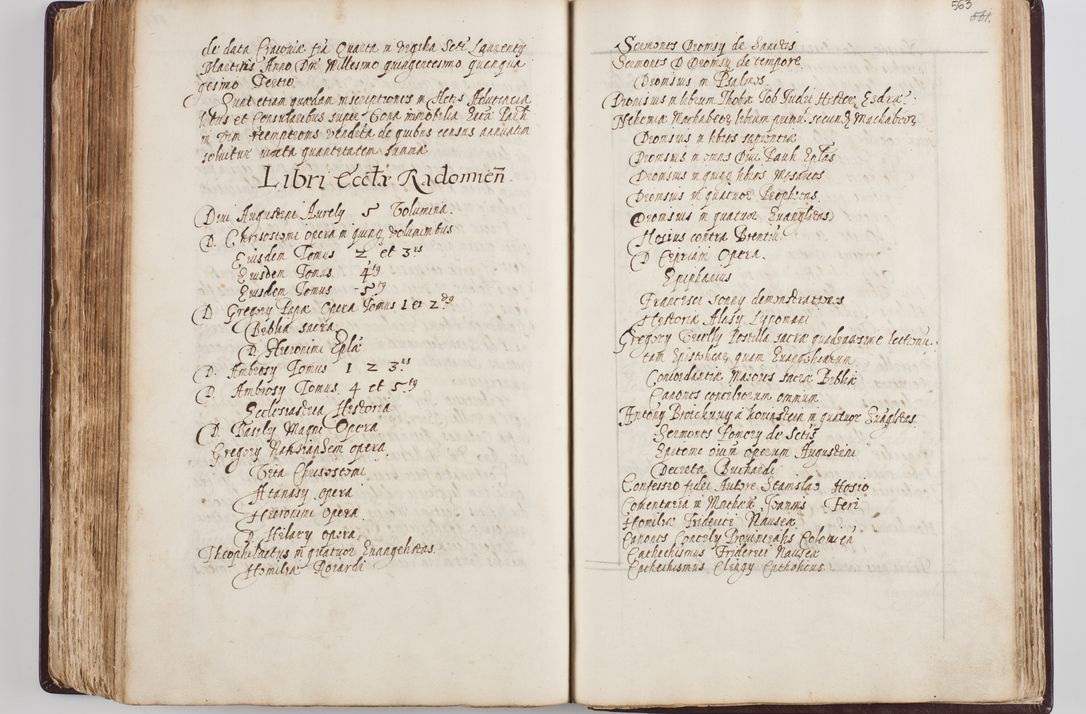 de data Cracoviæ fria Quarta in vigilia Scti Laurenty
Martiris Anno Dni Millesimo quingentesimo quinqua
gesimo Tertio.
Sunt etiam quædam inscriptiones in Actis Advocatia
libus et Consularibus super bona immobilia
in vendita de quibus census annuatim
solvitur iuxta quantitatem summæ
Libri Ecclæ Radomień
Divi Augustini Aurely 5 Volumina.
D. Chrisostomi opera in quinq volumimibus
Eiusdem Tomus 2 et 3us
Eiusdem Tomus 4tq
Eiusdem Tomus 5tq
D Gregory Papæ Opera Tomus 1 et 2dq
Biblia sacra
D. Hieronimi Eplæ
D. Ambrosy Tomus 1 2 3us
D. Ambrosy Tomus 4 et 5tq
Ecclesiastica Historia
D. Basily Magni Opera
Gregory Nazianzeni opera
Vita Chrisostomi
Atanasy opera
Hieronimi Opera
D. Hilary opera
Theophilactus in quatuor Euangelistas
Homiliæ Roiardi
563
561.
Sermones Dionisy de Sanctis
Sermones D Dionisy de tempore
Dionisius in Psalmos
Dionisius in librum Thobiæ Iob Iudit Hester Esdræ
Nehemiæ Machabeor librum primū secund Machabeor
Dionisius in libros sapientiæ
Dionisius in omnes Divi Pauli Eplas
Dionisius in quinq libros Mosaicos
Dionisius in quatuor Prophetas
Dionisius in quatuor Euangelistas
Hosius contra Brentiū
D Cipriani Opera
Epiphanius
Francisci sonny demonstrationes
Historia Alosy Lypomani
Gregory Postilla sacræ quadragesime lectionū
tam Epistolicar quam Euangelicarum
Concordantiæ Maiores sacræ Bibliæ
Canones conciliorum omnium
Antony Broickwy a konigstein in quatuor Euāglistas
Sermones Pomery de Sctis
Epitome oīum operum Augustini
Decreta Buchardi
Confessio fidei Autore Stanislao Hosio
Comentaria in Mathæū Ioannis Feri
Homiliæ Friderici Nauseæ
Canones Concily Provincialis Colonień
Cathechismus Friderici Nauseæ
Cathechismus Catholicus